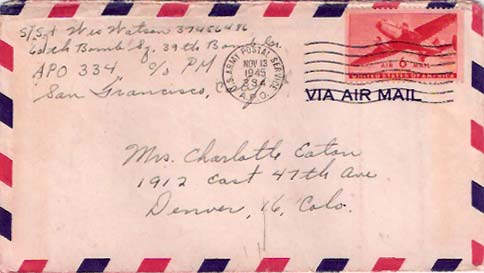 S/Sgt Wes Watson 37456486
60th Bomb Sq. 39th Bomb Gr.
APO 334 c/o PM
San Francisco,
U.S. ARMY POSTAL SERVICE
NOV 13
1945
334
A.P.O.
AIR 6¢ MAIL
UNITED STATES OF AMERICA
VIA AIR MAIL
Mrs. Charlotte Eaton
1912 East 47th Ave
Denver, 16, Colo.